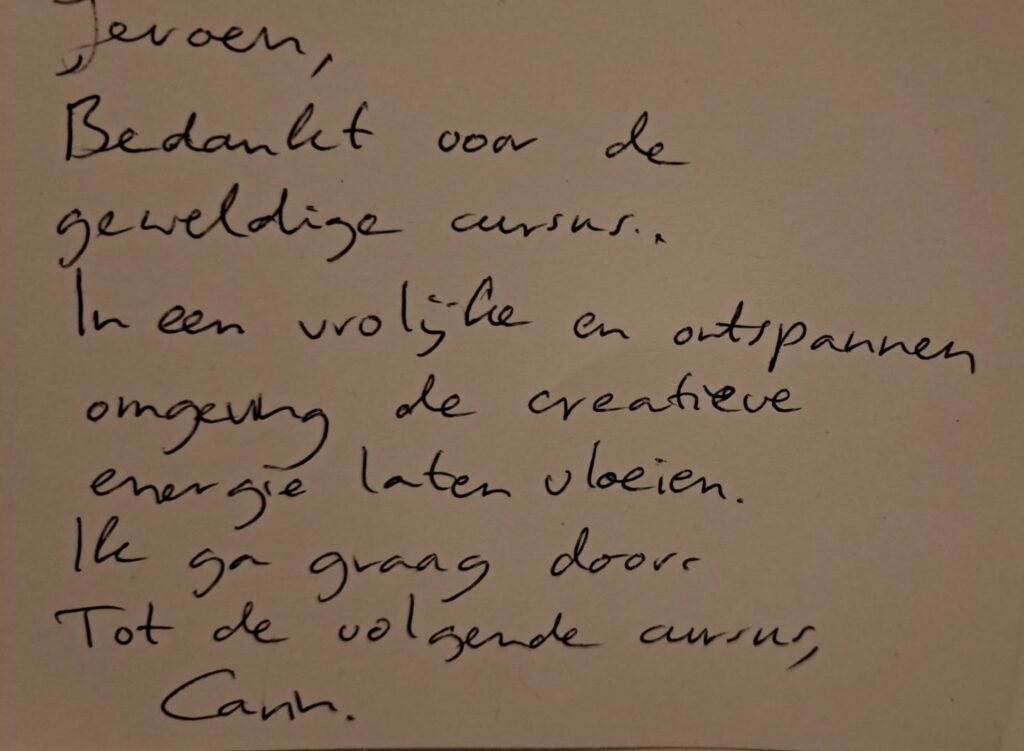 Jeroen,
Bedankt voor de
geweldige cursus..
In een vrolijke en ontspannen
omgeving de creatieve
energie laten vloeien.
Ik ga graag door.
Tot de volgende cursus,
Carin.